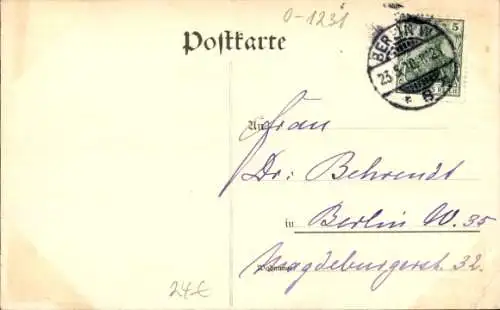 0-1231
Postkarte
5
BERLIN W.
23.5.10.
* 8
An Frau
Dr: Behrendt
in Berlin W. 35
Magdeburgerst. 32.
24€